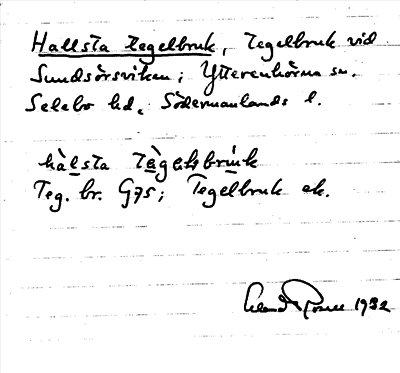 Hallsta tegelbruk, Tegelbruk vid
Sundsörsviken; Ytterenhörna sn.
Selebo hd, Södermanlands l.
hàlsta tègəlbrùk
Teg. br. G75; Tegelbruk ek.
1932